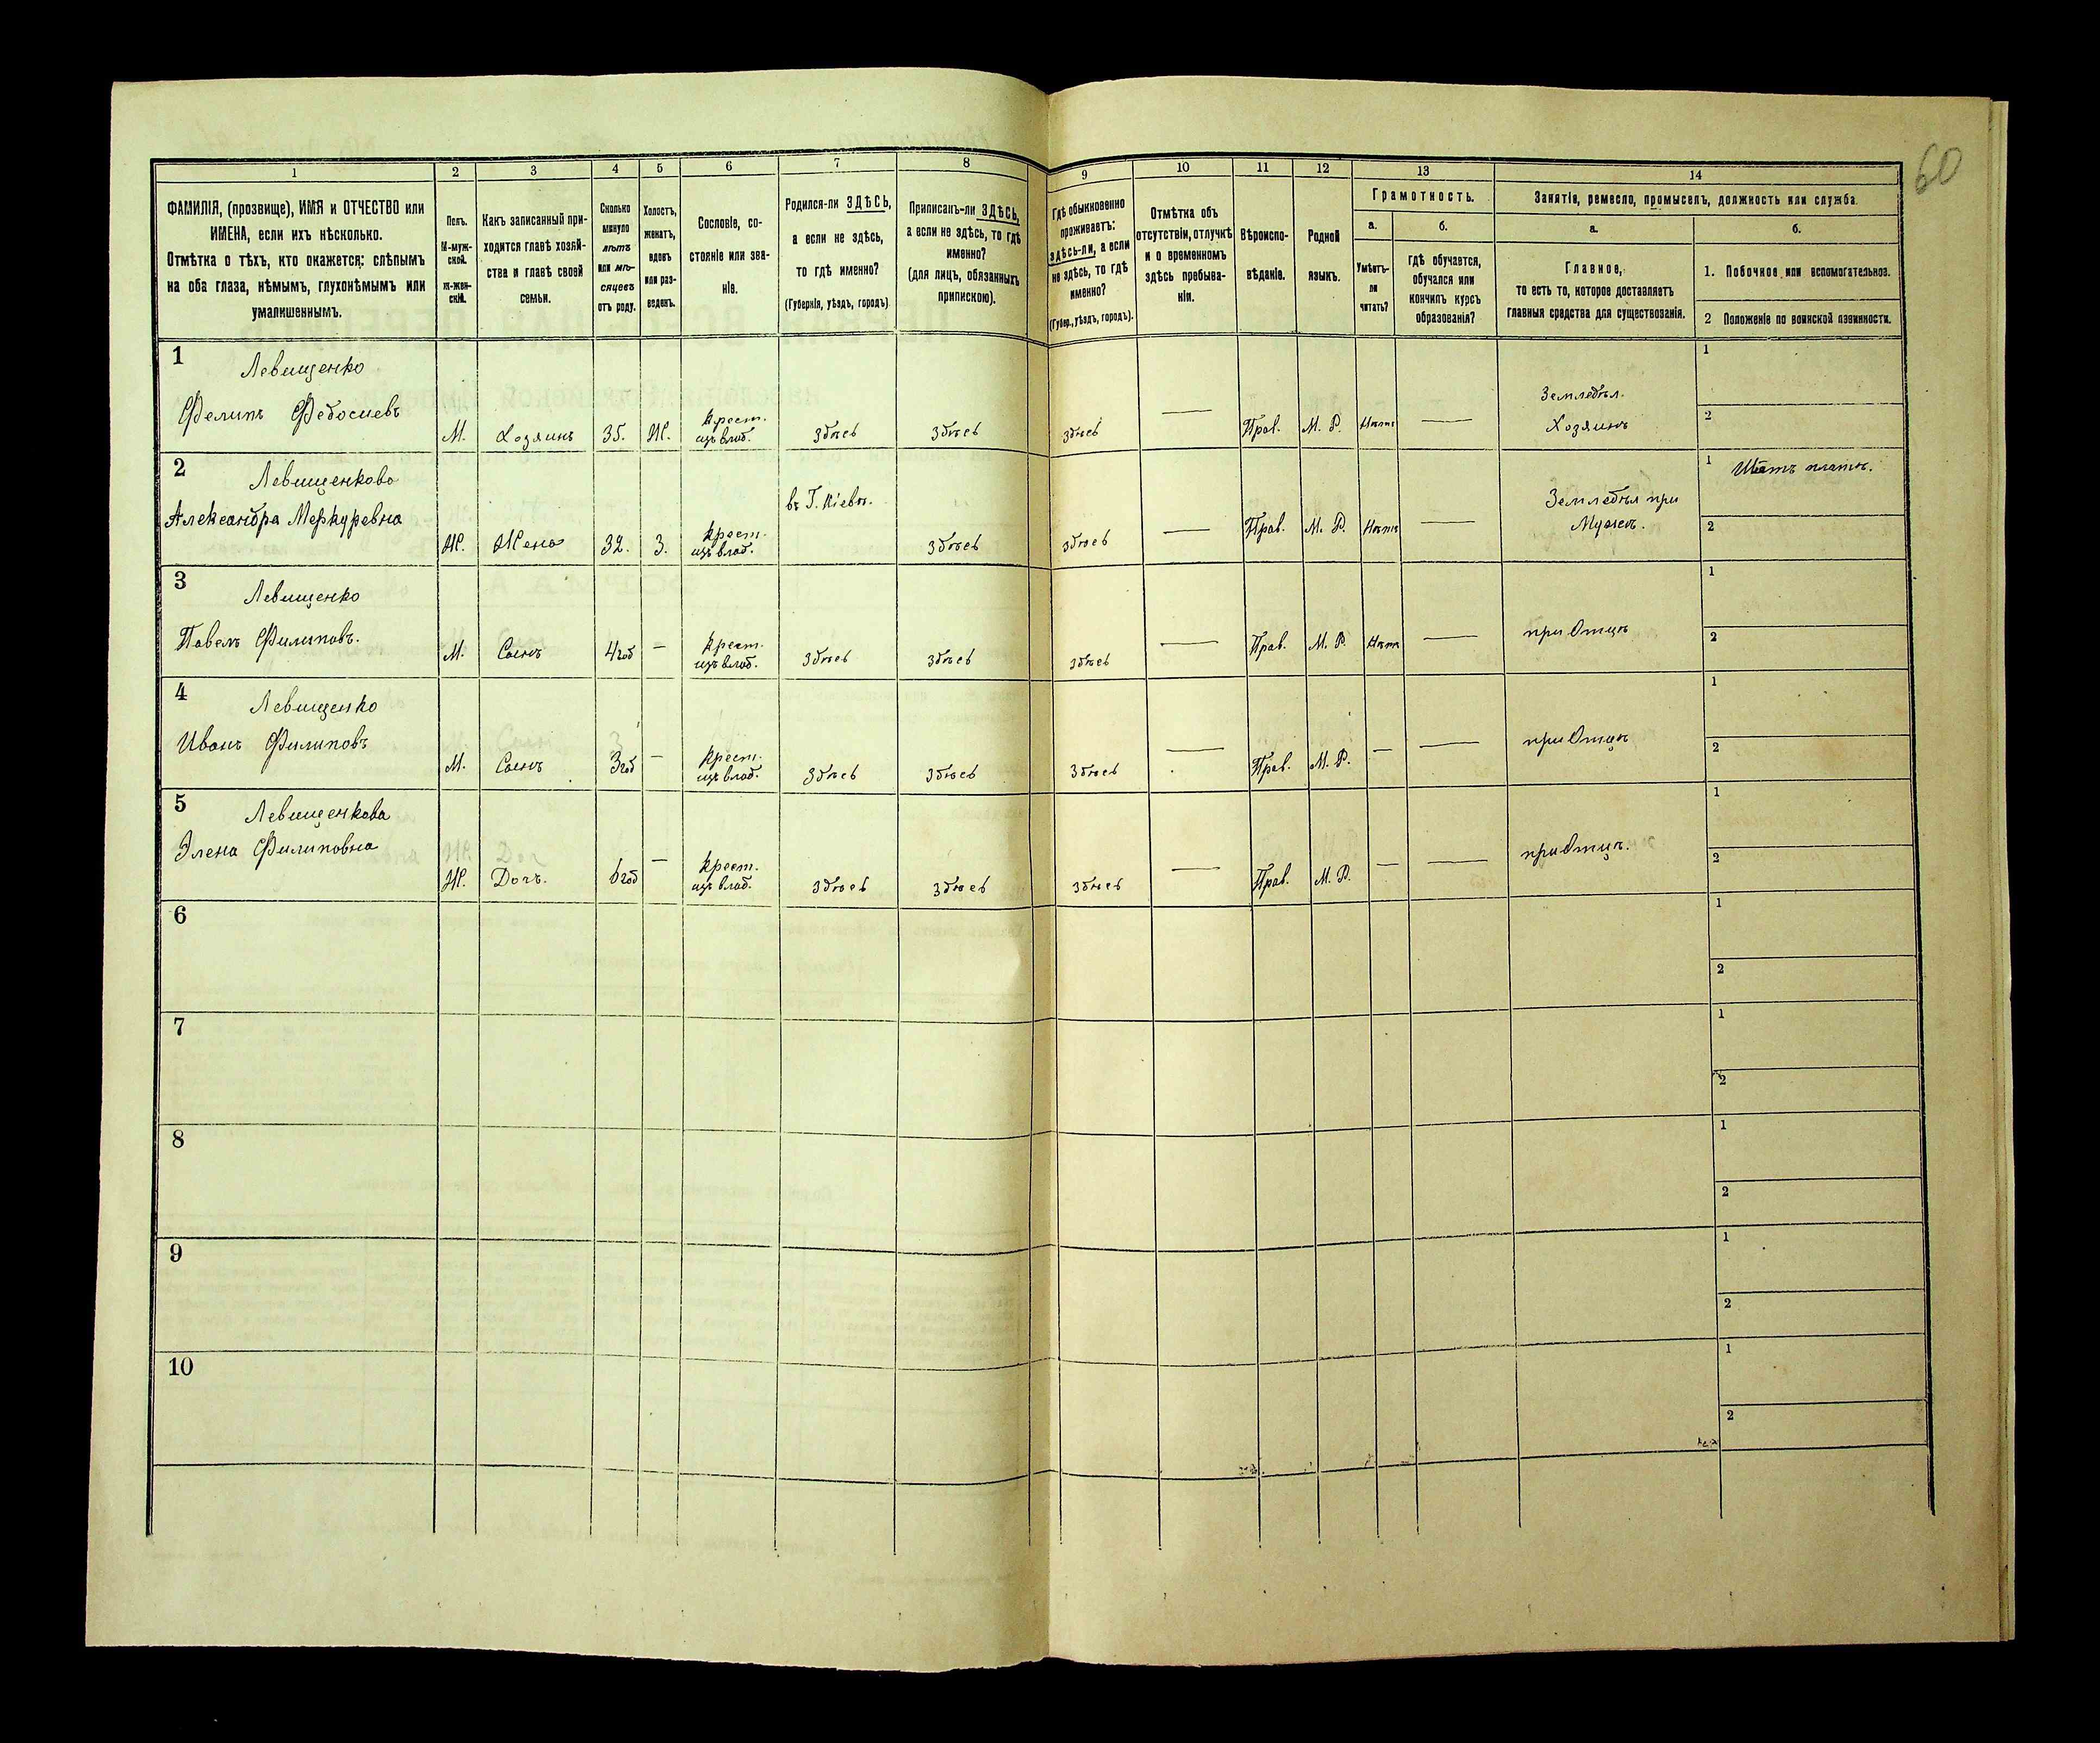 60
1 2 3 4 5 6 7 8 9 10 11 12 13 14
ФАМИЛІЯ, (прозвище), ИМЯ и ОТЧЕСТВО или
ИМЕНА, если ихъ нѣсколько.
Отмѣтка о тѣхъ, кто окажется: слѣпымъ
на оба глаза, нѣмымъ, глухонѣмымъ или
умалишеннымъ.
Полъ.
М-муж-
ской.
Ж-жен-
скій.
Какъ записанный при-
ходится главѣ хозяй-
ства и главѣ своей
семьи.
Сколько
минуло
лѣтъ
или мѣ-
сяцевъ
отъ роду.
Холостъ,
женатъ,
вдовъ
или раз-
веденъ.
Сословіе, со-
стояніе или зва-
ніе.
Родился-ли ЗДѢСЬ,
а если не здѣсь,
то гдѣ именно?
(Губернія, уѣздъ, городъ)
Приписанъ-ли ЗДѢСЬ,
а если не здѣсь, то гдѣ
именно?
(для лицъ, обязанныхъ
припискою).
Гдѣ обыкновенно
проживаетъ:
здѣсь-ли, а если
не здѣсь, то гдѣ
именно?
(Губер., уѣздъ, городъ).
Отмѣтка объ
отсутствіи, отлучкѣ
и о временномъ
здѣсь пребыва-
ніи.
Вѣроиспо-
вѣданіе.
Родной
языкъ.
Грамотность.
а.
Умѣетъ-
ли
читать?
б.
гдѣ обучается,
обучался или
кончилъ курсъ
образованія?
Занятіе, ремесло, промыселъ, должность или служба.
а.
Главное,
то есть то, которое доставляетъ
главныя средства для существованія.
б.
1. Побочное или вспомогательное.
2 Положеніе по воинской повинности.
1 Левищенко
Филипъ Федосиевъ
М. Хозяинъ 35. Ж. Крест. изъ влад. Здѣсь Здѣсь Здѣсь — Прав. М. Р. Нѣтъ — Земледѣл. Хозяинъ 1
2
2 Левищенкова
Александра Меркуревна
Ж. Жена 32. З. Крест. изъ влад. въ Г. Кіевѣ. Здѣсь Здѣсь — Прав. М. Р. Нѣтъ — Земледѣл при Мужѣ. 1
2
3 Левищенко
Павелъ Филиповъ.
М. Сынъ 4 год — Крест. изъ влад. Здѣсь Здѣсь Здѣсь — Прав. М. Р. Нѣтъ — при Отцѣ 1
2
4 Левищенко
Иванъ Филиповъ
М. Сынъ 3 год — Крест. изъ влад. Здѣсь Здѣсь Здѣсь — Прав. М. Р. — — при Отцѣ 1
2
5 Левищенкова
Элена Филиповна
Ж. Дочъ. 6 год — Крест. изъ влад. Здѣсь Здѣсь Здѣсь — Прав. М. Р. — — при Отцѣ. 1
2
6 1
2
7 1
2
8 1
2
9 1
2
10 1
2